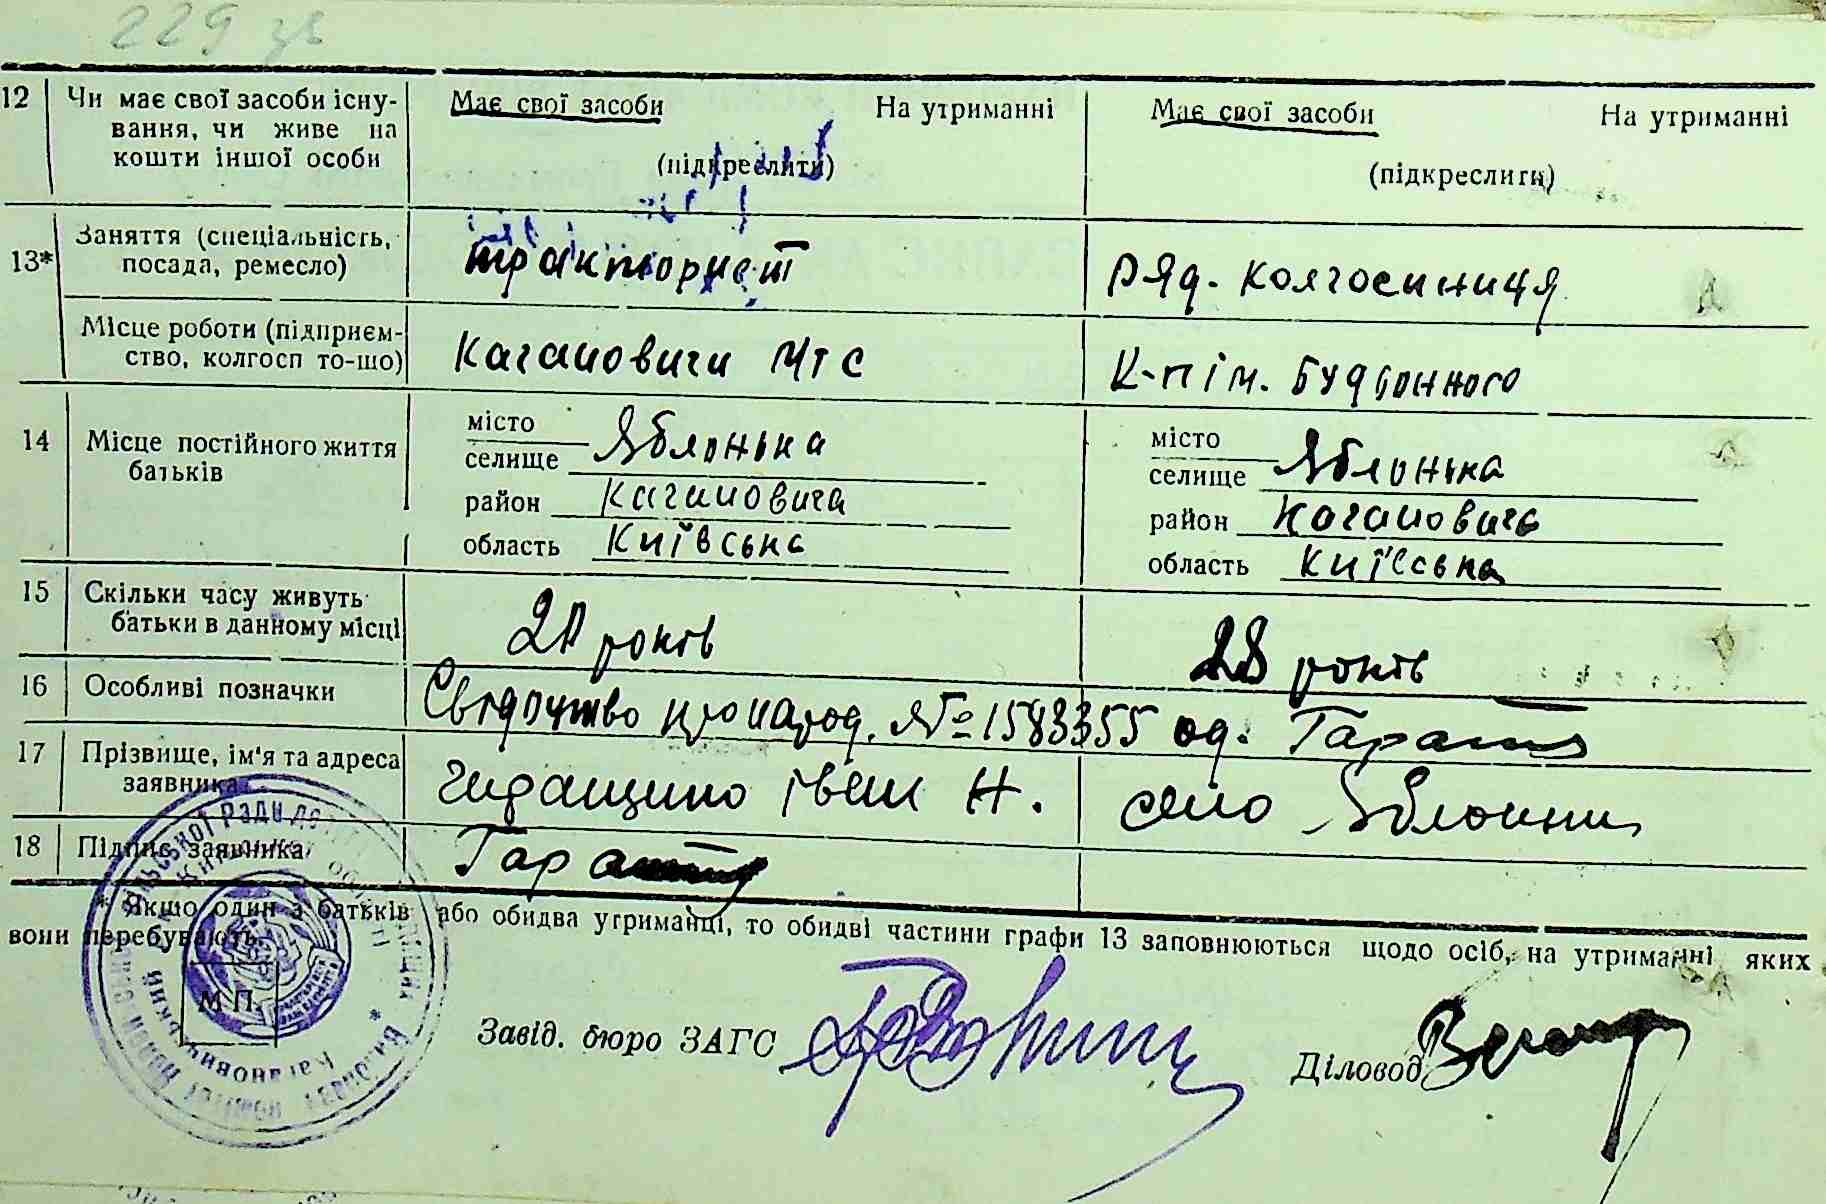 229 зв
12 Чи має свої засоби існу- Має свої засоби На утриманні Має свої засоби На утриманні
вання, чи живе на
кошти іншої особи (підкреслити) (підкреслити)
13* Заняття (спеціальність, тракторист ряд. колгоспниця
посада, ремесло)
Місце роботи (підприєм- Кагановичи МТС К-п ім. Будьонного
ство, колгосп то-що)
14 Місце постійного життя місто Яблонька місто Яблонька
батьків селище селище
район Кагановича район Кагановича
область Київська область Київська
15 Скільки часу живуть 20 років 28 років
батьки в данному місці
16 Особливі позначки Свідоцтво про народ. № 1583355 од.
17 Прізвище, ім'я та адреса Іван Н. село
заявника
18 Підпис заявника
* Якщо один з батьків або обидва утриманці, то обидві частини графи 13 заповнюються щодо осіб, на утриманні яких
вони перебувають.
М.П.
Завід. бюро ЗАГС Діловод